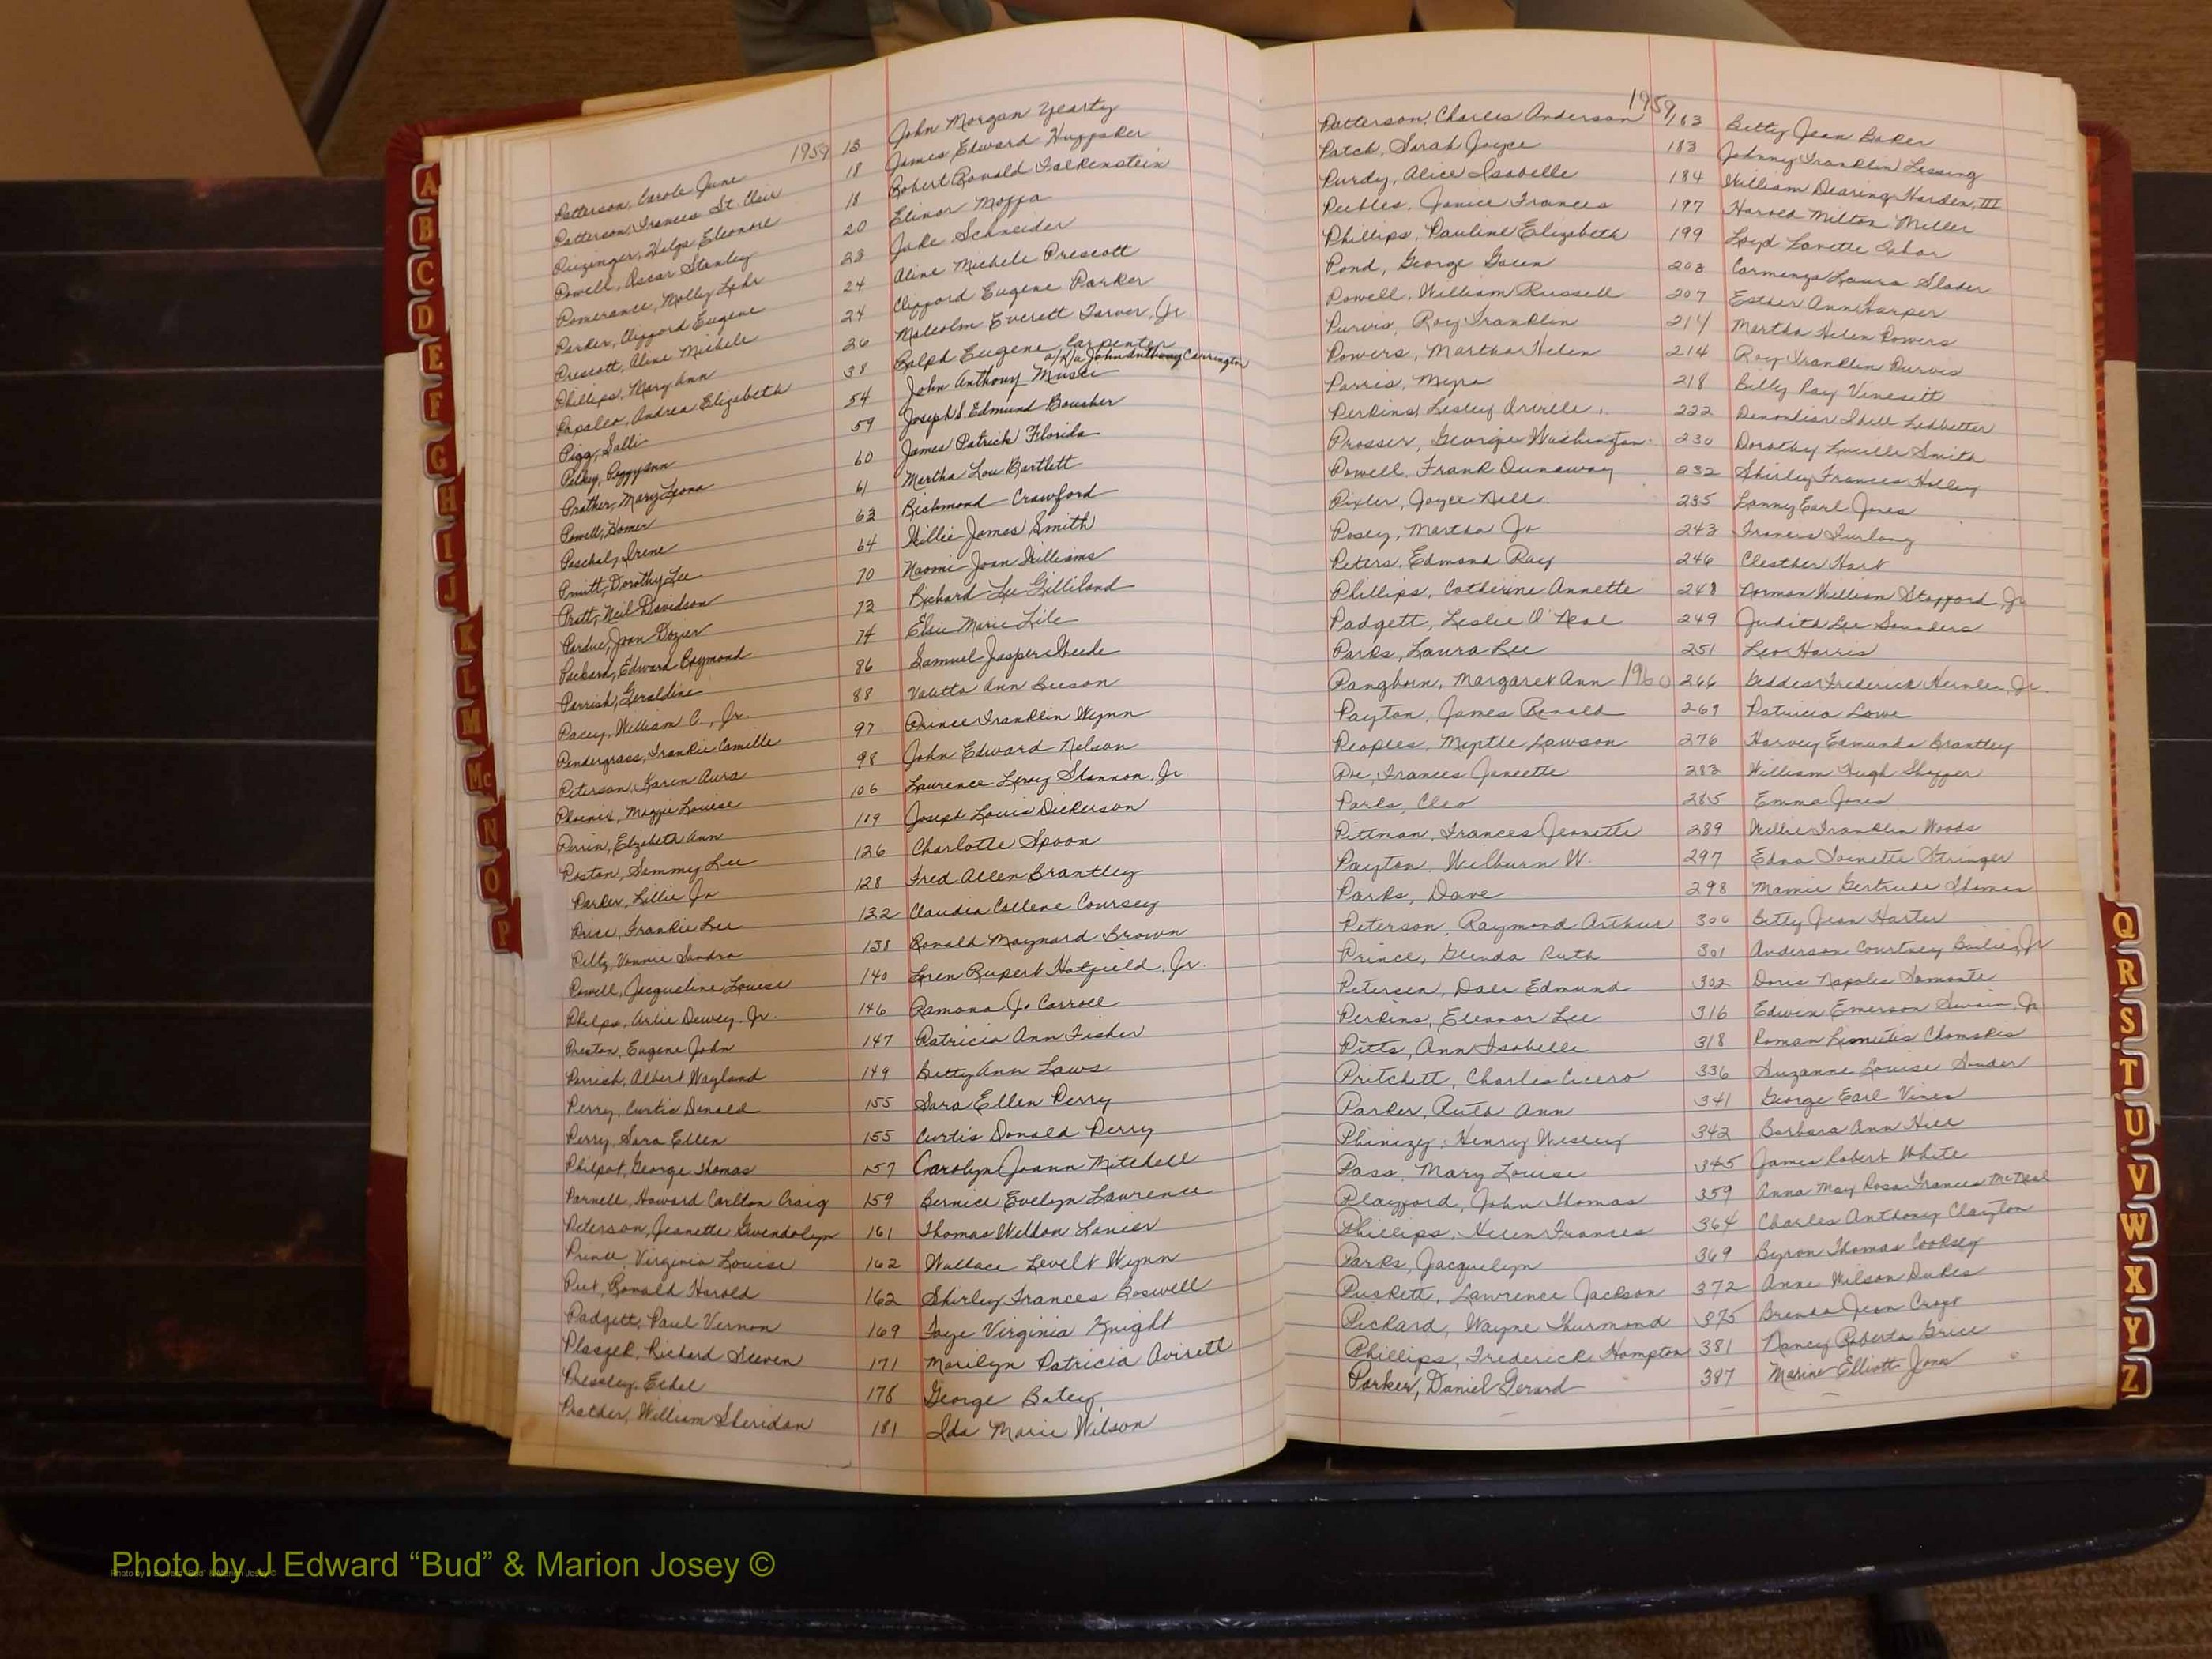 1959
Patterson, Carole June 13 John Morgan Yearty
Patterson, Frances St. Clair 18 James Edward Huffaker
Helga Eleonore 18 Robert Ronald Falkenstein
Powell, Oscar Stanley 20 Elinor Moffa
Pomerance, Molly Lehr 23 Jake Schneider
Parker, Clifford Eugene 24 Aline Michele Prescott
Prescott, Aline Michele 24 Clifford Eugene Parker
Phillips, Mary Ann 26 Malcolm Everett Tarver, Jr
Papaleo, Andrea Elizabeth 38 Ralph Eugene Carpenter
a/k/a John Anthony Carrington
Pigg, Salli 54 John Anthony Musci
Pelkey, Peggy Ann 59 Joseph S. Edmund Bousher
Prather, Mary Leona 60 James Patrick Florida
Powell, Homer 61 Martha Lou Bartlett
Paschal, Irene 63 Richmond Crawford
Pruitt, Dorothy Lee 64 Willie James Smith
Pratt, Neil Davidson 70 Naomi Joan Williams
Pardue, Joan Dozier 73 Richard Lee Gilliland
Packard, Edward Raymond 74 Elsie Marie Lile
Parrish, Geraldine 86 Samuel Jasper Weede
Pacey, William C., Jr. 88 Valetta Ann Beeson
Pendergrass, Frankie Camille 97 Prince Franklin Wynn
Peterson, Karen Aura 98 John Edward Nelson
Phoenix, Maggie Louise 106 Laurence Leroy Shannon, Jr.
Perrin, Elizabeth Ann 119 Joseph Louis Dickerson
Poston, Sammy Lee 126 Charlotte Spoon
Parker, Lillie Jo 128 Fred Allen Brantley
Price, Frankie Lee 132 Claudia Collene Coursey
Peltz, Vonnie Sandra 138 Ronald Maynard Brown
Powell, Jacqueline Louise 140 Loren Rupert Hatfield, Jr.
Phelps, Arlie Dewey, Jr. 146 Ramona Jo Carroll
Preston, Eugene John 147 Patricia Ann Fisher
Parrish, Albert Wayland 149 Betty Ann Laws
Perry, Curtis Donald 155 Sara Ellen Perry
Perry, Sara Ellen 155 Curtis Donald Perry
Philpot, George Thomas 157 Carolyn Joann Mitchell
Parnell, Howard Carlton Craig 159 Bernice Evelyn Laurence
Peterson, Jeanette Gwendolyn 161 Thomas Weldon Lanier
Prince, Virginia Louise 162 Wallace Levelt Wynn
Peet, Ronald Harold 162 Shirley Frances Boswell
Padgett, Paul Vernon 169 Faye Virginia Knight
Plaszek, Richard Steven 171 Marilyn Patricia Avirett
Pressley, Ethel 178 George Batey
Prather, William Sheridan 181 Ida Marie Wilson
1959
Patterson, Charles Anderson 183 Betty Jean Baker
Patch, Sarah Joyce 183 Johnny Franklin Lessing
Purdy, Alice Isabelle 184 William Dearing Harden, III
Peebles, Janice Frances 197 Harold Milton Miller
Phillips, Pauline Elizabeth 199 Loyd Lavette Tabor
Pond, George Green 203 Carmenza Laura Slader
Powell, William Russell 207 Esther Ann Harper
Purvis, Roy Franklin 214 Martha Helen Powers
Powers, Martha Helen 214 Roy Franklin Purvis
Parris, Myra 218 Billy Ray Vinesett
Perkins, Lesley Orville 222 Ledbetter
Prosser, George Washington 230 Dorothy Lucille Smith
Powell, Frank Dunaway 232 Shirley Frances Holley
Pixler, Joyce Nell 235 Lanny Earl Jones
Posey, Martha Jo 243 Francis Furlong
Peters, Edmond Ray 246 Clesther Hart
Phillips, Catherine Annette 248 Norman William Stafford, Jr
Padgett, Leslie O'Neal 249 Judith Lee Saunders
Parks, Laura Lee 251 Leo Harris
Pangborn, Margaret Ann 1960 266 Geddes Frederick Hernlen, Jr.
Payton, James Ronald 269 Patricia Lowe
Peoples, Myrtle Lawson 276 Harvey Edmunds Brantley
Poe, Frances Janette 282 William Hugh Shaffer
Parks, Cleo 285 Emma Jones
Pittman, Frances Jeanette 289 Willie Franklin Woods
Payton, Wilburn W. 297 Edna Toinette Stringer
Parks, Dave 298 Mamie Gertrude Thomas
Peterson, Raymond Arthur 300 Betty Jean Harter
Prince, Glenda Ruth 301 Anderson Courtney Builies, Jr
Petersen, Dale Edmund 302 Doris Napoles Samonte
Perkins, Eleanor Lee 316 Edwin Emerson Swain, Jr
Pitts, Ann Isabelle 318 Roman Chomskis
Pritchett, Charles Cicero 336 Suzanne Louise Souder
Parker, Ruth Ann 341 George Earl Vines
Phinizy, Henry Wesley 342 Barbara Ann Hill
Pass, Mary Louise 345 James Robert White
Playford, John Thomas 359 Anna May Rosa Frances McNeal
Phillips, Helen Frances 364 Charles Anthony Clayton
Parks, Jacquelyn 369 Byron Thomas Cooksey
Puckett, Lawrence Jackson 372 Anne Wilson Dukes
Pickard, Wayne Thurmond 375 Brenda Jean Croft
Phillips, Frederick Hampton 381 Nancy Roberta Grice
Parker, Daniel Gerard 387 Maxine Elliott Jones
A
B
C
D
E
F
G
H
I
J
K
L
M
Mc
N
O
P
Q
R
S
T
U
V
W
X
Y
Z
Photo by J Edward “Bud” & Marion Josey ©
Photo by J Edward “Bud” & Marion Josey ©